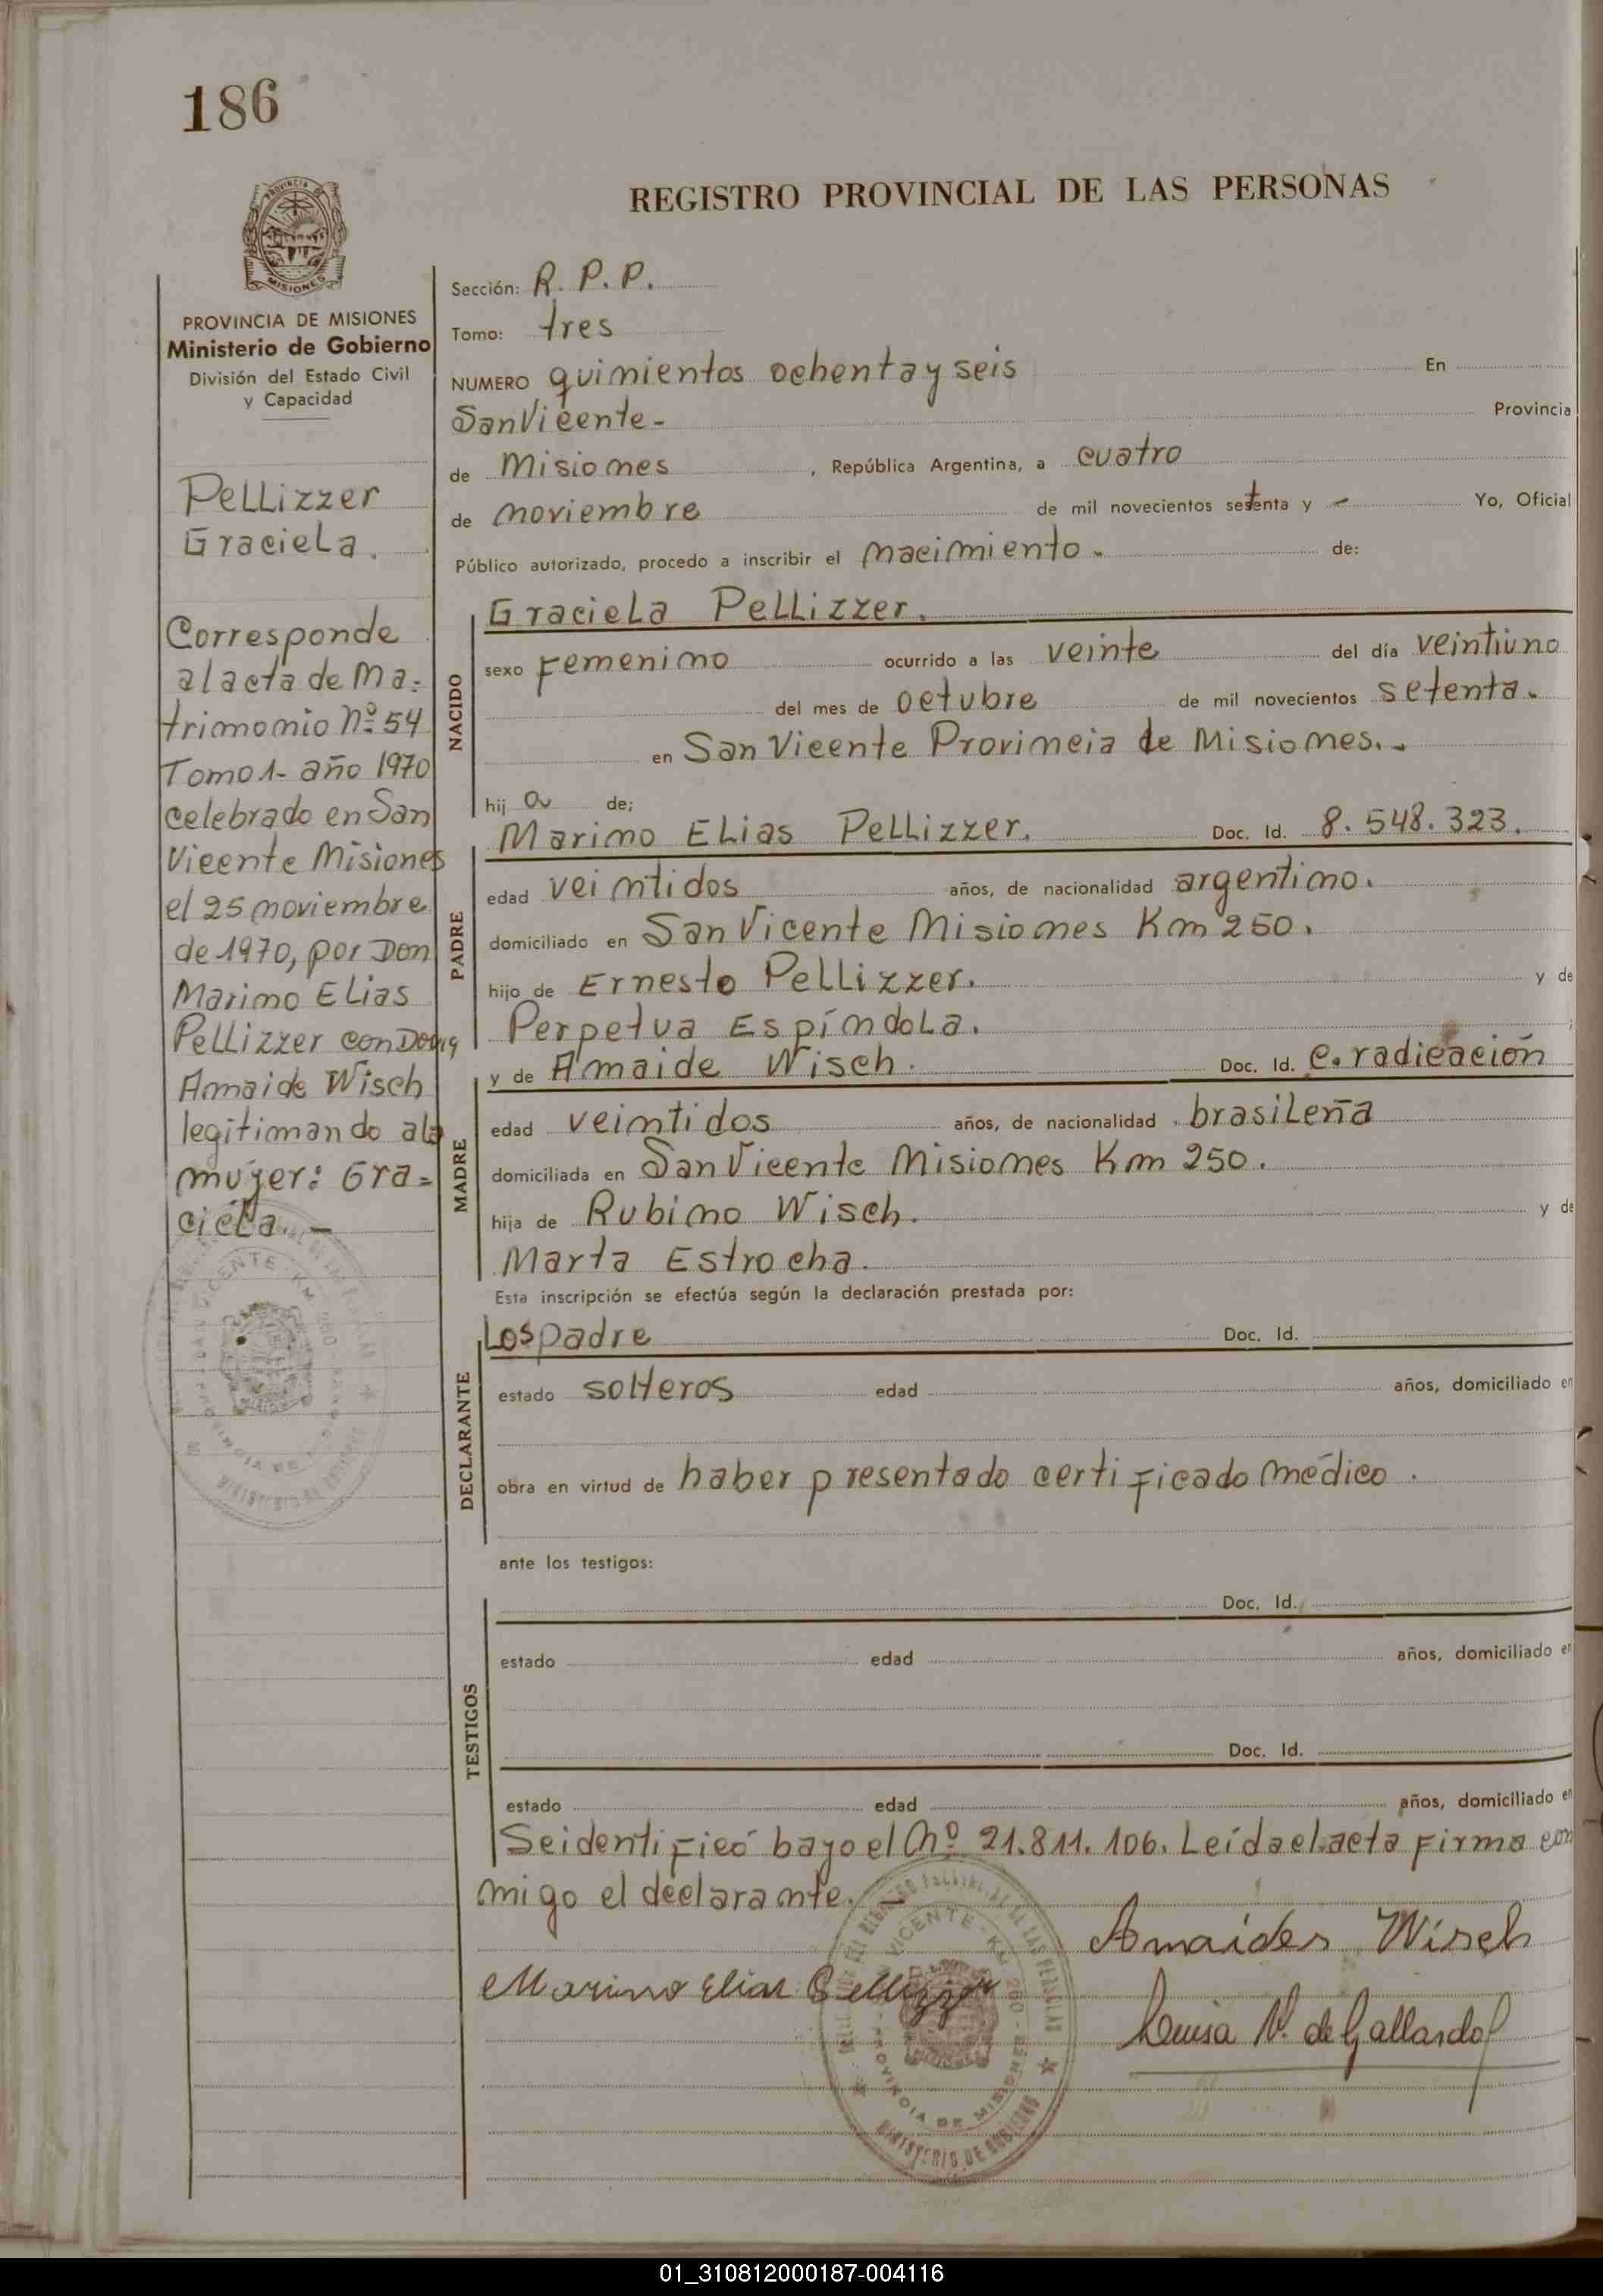 186
REGISTRO PROVINCIAL DE LAS PERSONAS
PROVINCIA DE
MISIONES
PROVINCIA DE MISIONES
Ministerio de Gobierno
División del Estado Civil
y Capacidad
Pellizzer
Graciela.
Corresponde
al acta de Ma=
trimonio Nº 54
Tomo 1- año 1970
celebrado en San
Vicente Misiones
el 25 noviembre
de 1970, por Don
Marino Elias
Pellizzer con Doña
Amaide Wisch
legitimando a la
mujer: Gra=
ciela. -
Sección: R. P. P.
Tomo: tres
NUMERO quinientos ochenta y seis En
San Vicente - Provincia
de Misiones , República Argentina, a cuatro
de noviembre de mil novecientos setenta y - Yo, Oficial
Público autorizado, procedo a inscribir el nacimiento. de:
NACIDO
Graciela Pellizzer.
sexo Femenino ocurrido a las veinte del día veintiuno
del mes de octubre de mil novecientos setenta.
en San Vicente Provincia de Misiones.
hij a de;
PADRE
Marino Elias Pellizzer. Doc. Id. 8.548.323.
edad veintidos años, de nacionalidad argentino.
domiciliado en San Vicente Misiones Km 250.
hijo de Ernesto Pellizzer. y de
Perpetua Espíndola. ;
MADRE
y de Amaide Wisch. Doc. Id. C. radicación
edad veintidos años, de nacionalidad brasileña
domiciliada en San Vicente Misiones Km 250.
hija de Rubino Wisch. y de
Marta Estrocha.
Esta inscripción se efectúa según la declaración prestada por:
DECLARANTE
Los padre Doc. Id.
estado solteros edad años, domiciliado en
obra en virtud de haber presentado certificado médico.
ante los testigos:
TESTIGOS
Doc. Id.
estado edad años, domiciliado en
Doc. Id.
estado edad años, domiciliado en
Se identificó bajo el Nº 21.811.106. Leída el acta firma con
migo el declarante. -
Amaides Wisch
Marino Elias Pellizzer
Luisa V. de Gallardo
VICENTE - KM
PROVINCIA DE MISIONES
MINISTERIO DE GOBIERNO
01_310812000187-004116